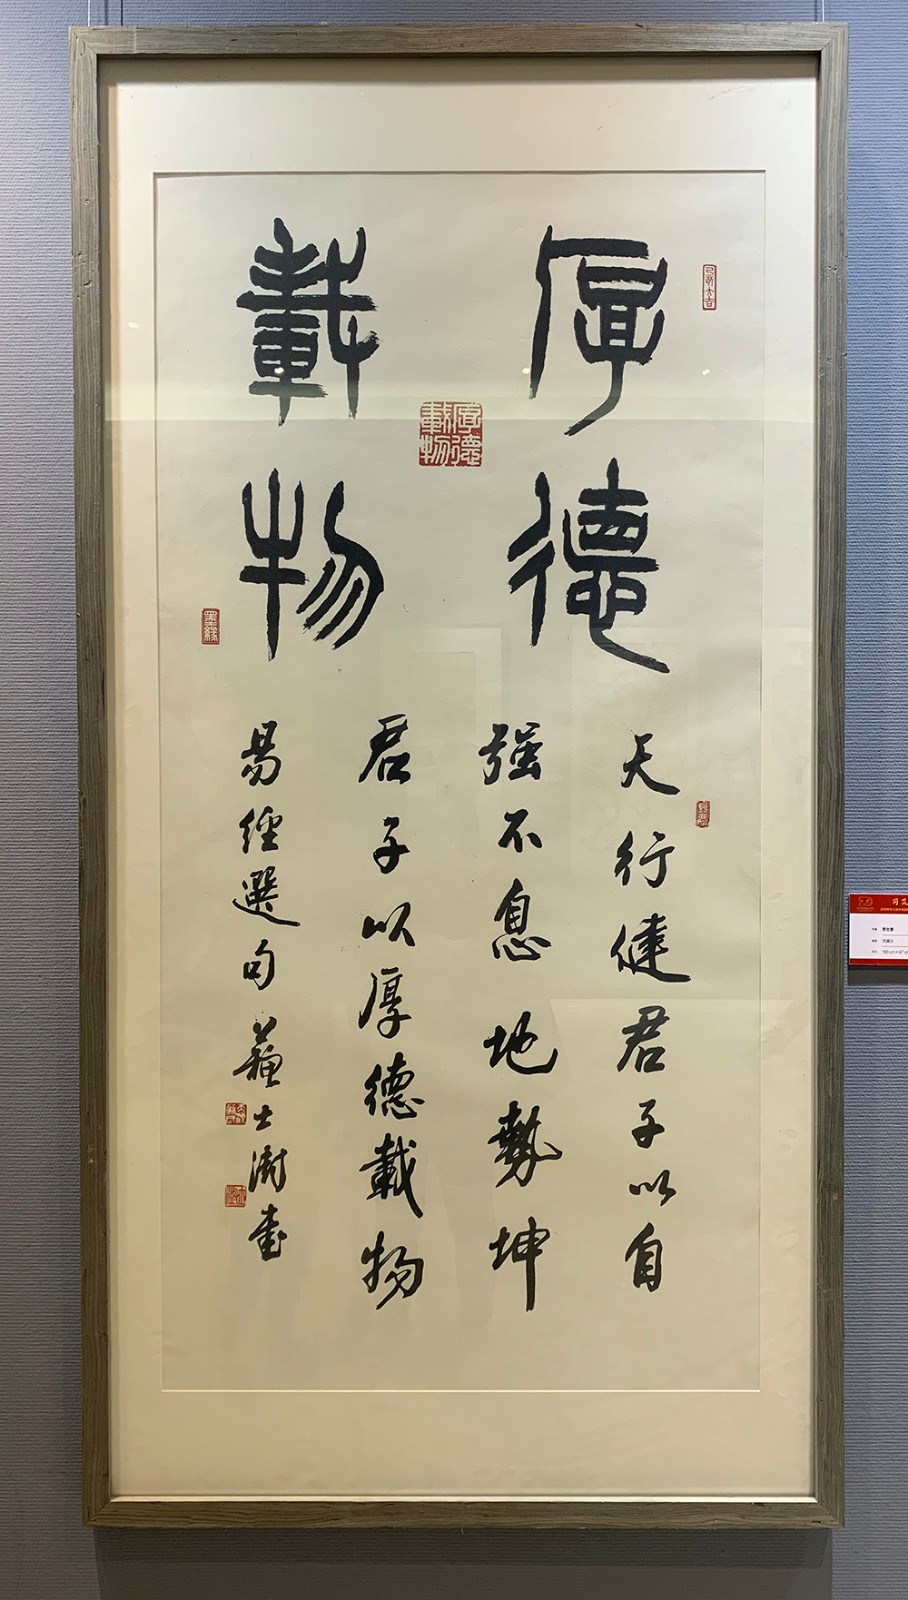 厚德
載物
天行健君子以自
强不息地勢坤
君子以厚德載物
易經選句蘇士澍書
厚德載物